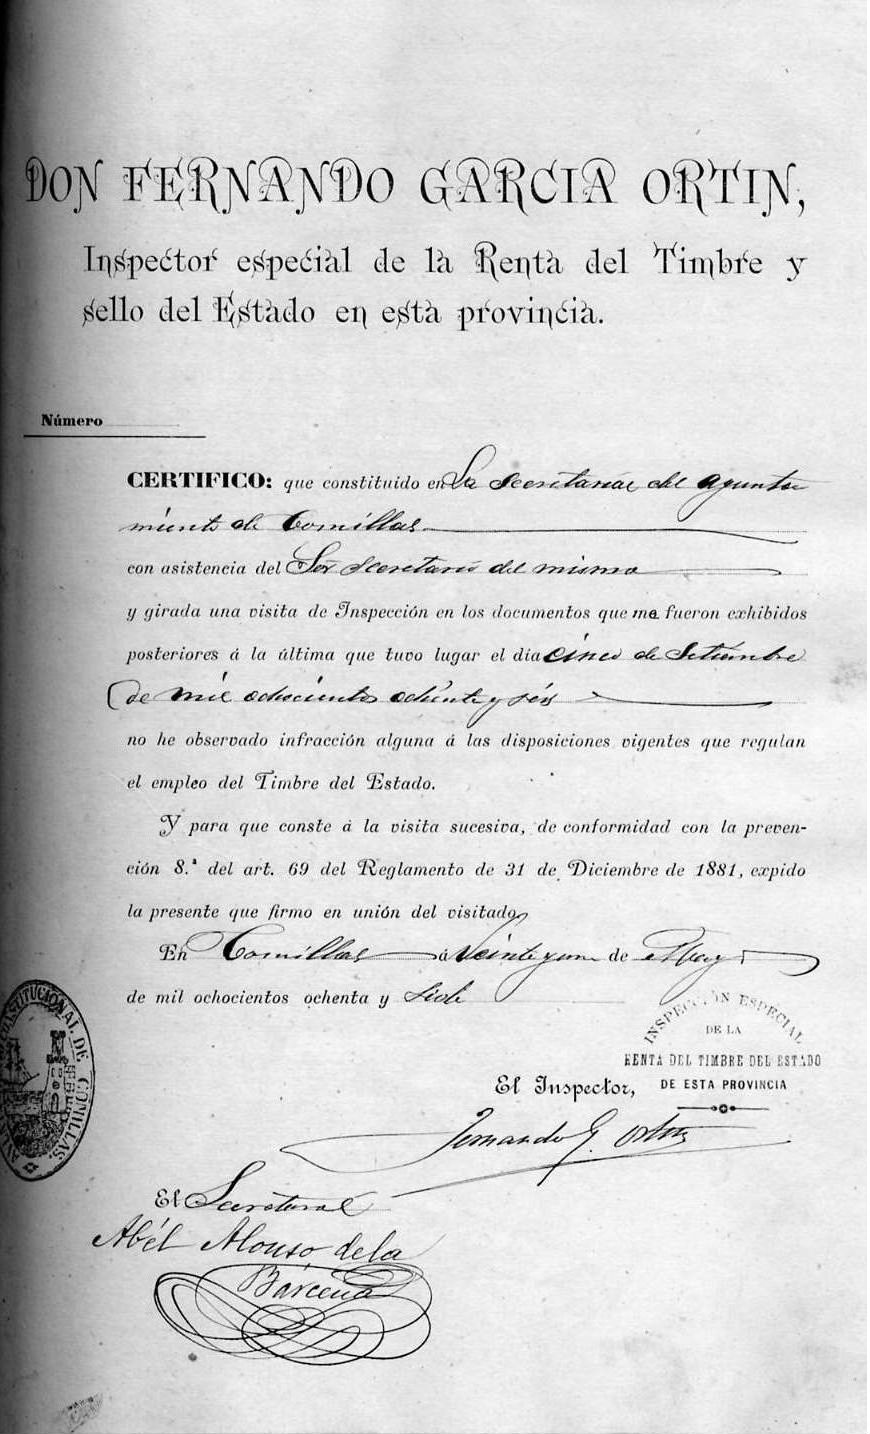 DON FERNANDO GARCIA ORTIN,
Inspector especial de la Renta del Timbre y
sello del Estado en esta provincia.
Número
CERTIFICO: que constituido en La Secretaria del Ayunta
miento de Comillas
con asistencia del Sor Secretario del mismo
y girada una visita de Inspección en los documentos que me fueron exhibidos
posteriores á la última que tuvo lugar el día cinco de Setiembre
de mil ochocientos ochenta y seis
no he observado infracción alguna á las disposiciones vigentes que regulan
el empleo del Timbre del Estado.
Y para que conste á la visita sucesiva, de conformidad con la preven-
ción 8.ª del art. 69 del Reglamento de 31 de Diciembre de 1881, expido
la presente que firmo en unión del visitado,
En Comillas á veinte y uno de Mayo
de mil ochocientos ochenta y siete
INSPECCIÓN ESPECIAL
DE LA
RENTA DEL TIMBRE DEL ESTADO
DE ESTA PROVINCIA
El Inspector,
Fernando G. Ortin
CONSTITUCIONAL DE COMILLAS.
El Secretario
Abél Alonso de la
Bárcena